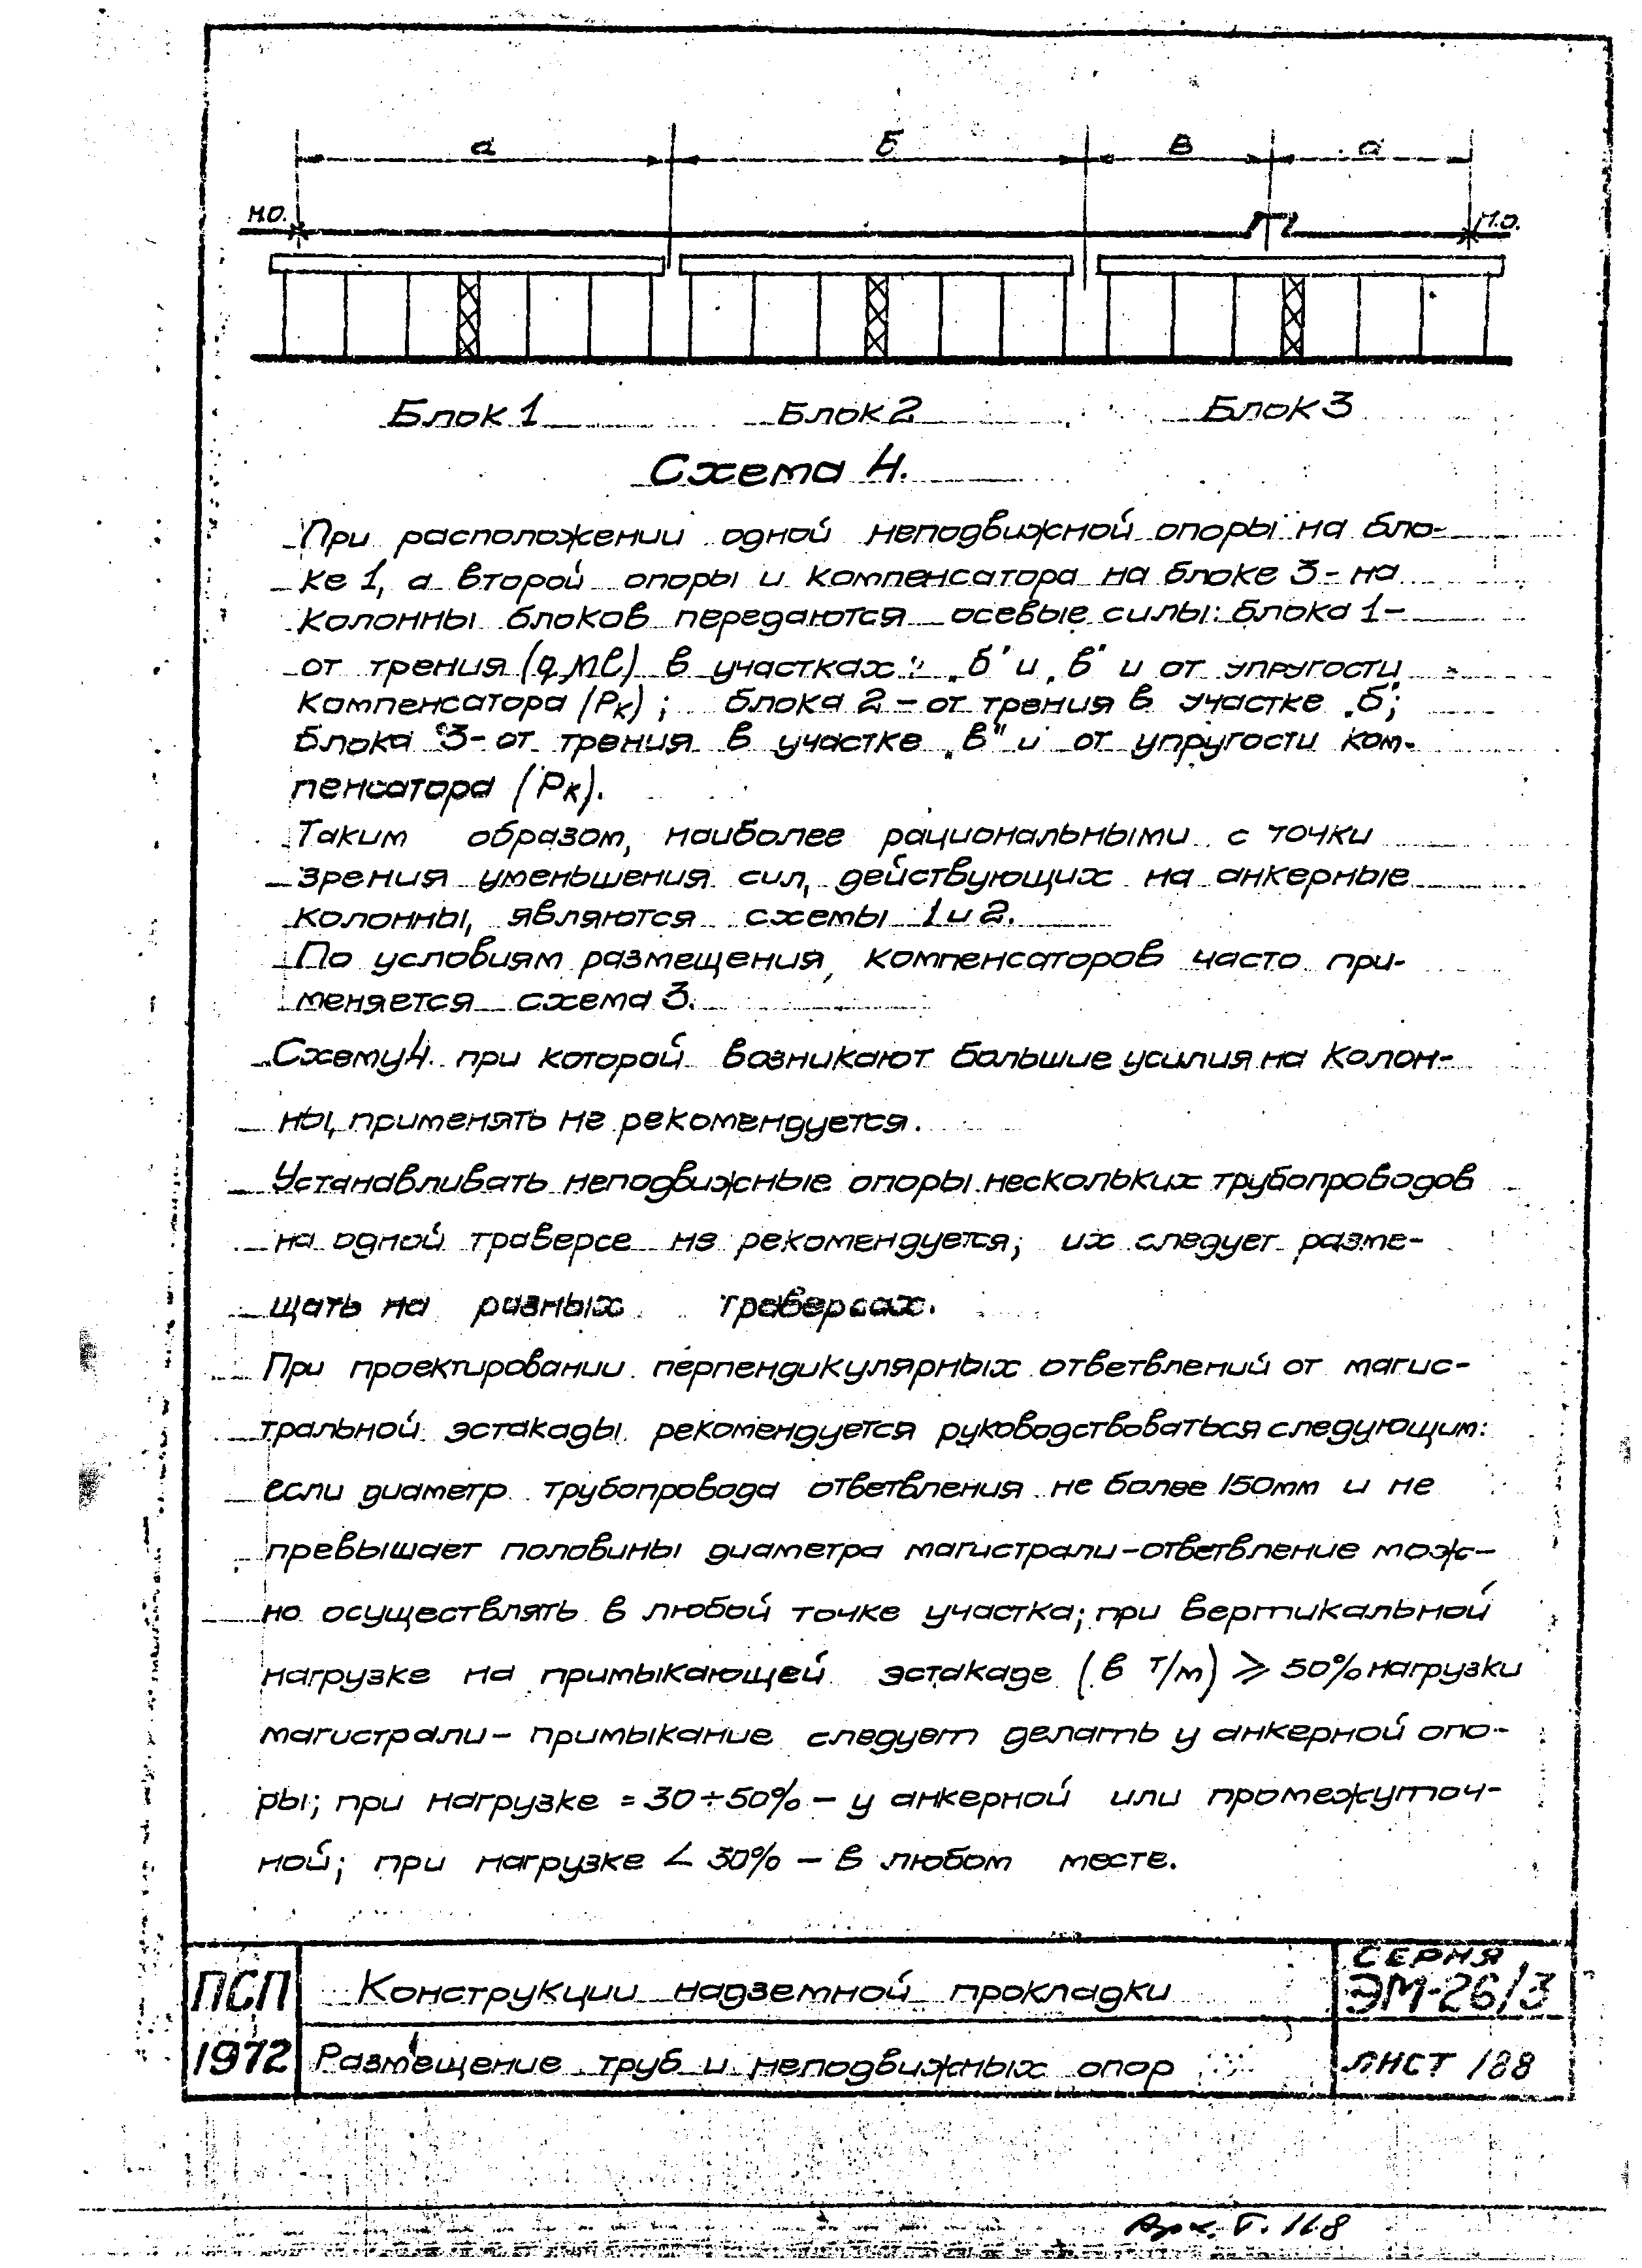 а б в а
н.о. н.о.
Блок 1 Блок 2 Блок 3
Схема 4.
При расположении одной неподвижной опоры на бло-
ке 1, а второй опоры и компенсатора на блоке 3 - на
колонны блоков передаются осевые силы: блока 1 -
от трения (qμℓ) в участках: „б" и „в" и от упругости
компенсатора (Рк); блока 2 - от трения в участке „б";
Блока 3 - от трения в участке „в" и от упругости ком-
пенсатора (Рк).
Таким образом, наиболее рациональными с точки
зрения уменьшения сил, действующих на анкерные
колонны, являются схемы 1 и 2.
По условиям размещения, компенсаторов часто при-
меняется схема 3.
Схему 4. при которой возникают большие усилия на колон-
ны, применять не рекомендуется.
Устанавливать неподвижные опоры нескольких трубопроводов
на одной траверсе не рекомендуется; их следует разме-
щать на разных траверсах.
При проектировании перпендикулярных ответвлений от магис-
тральной эстакады рекомендуется руководствоваться следующим:
если диаметр трубопровода ответвления не более 150мм и не
превышает половины диаметра магистрали - ответвление мож-
но осуществлять в любой точке участка; при вертикальной
нагрузке на примыкающей эстакаде (в т/м) ⩾ 50% нагрузки
магистрали - примыкание следует делать у анкерной опо-
ры; при нагрузке = 30÷50% - у анкерной или промежуточ-
ной; при нагрузке < 30% - в любом месте.
ПСП
1972
Конструкции надземной прокладки
Размещение труб и неподвижных опор
СЕРИЯ
ЭМ-26/3
ЛИСТ 188